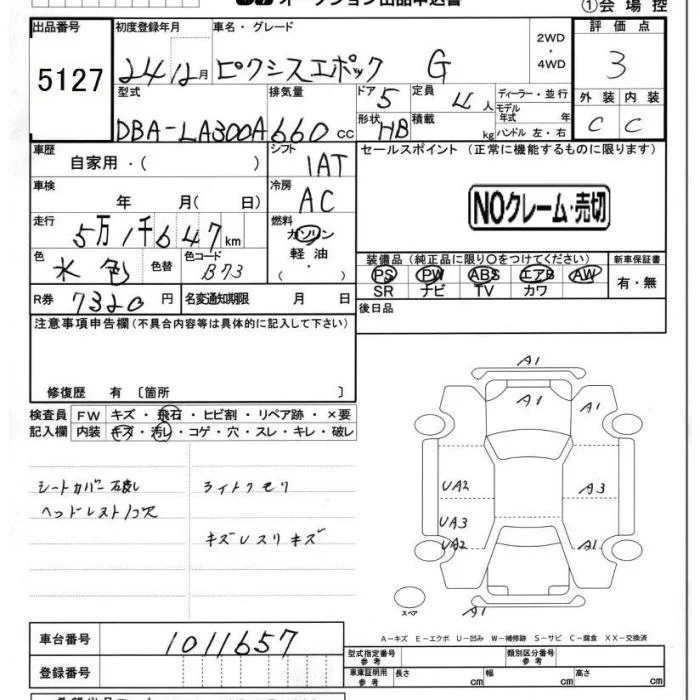 オークション出品申込書
①会場控
出品番号 初度登録年月 車名・グレード 2WD・4WD 評価点
5127 24 12月 ピクシスエポック G 3
型式 排気量 ドア 5 定員 4人 ディーラー・並行 外装 内装
DBA-LA300A 660cc 形状 HB 積載 kg モデル年式 年 ハンドル 左・右 C C
車歴 自家用・( ) シフト 1AT セールスポイント (正常に機能するものに限ります)
車検 年 月( 日) 冷房 AC
NOクレーム・売切
走行 5万1千647km 燃料 ガソリン 軽油 ・
装備品(純正品に限り○をつけてください) 新車保証書
色 水色 色替 色コード B73
PS PW ABS エアB AW 有・無
SR ナビ TV カワ
R券 7320円 名変通知期限 月 日
後日品
注意事項申告欄(不具合内容等は具体的に記入して下さい)
修復歴 有 〔箇所 〕
検査員 FW キズ・飛石・ヒビ割・リペア跡・×要
記入欄 内装 キズ・汚レ・コゲ・穴・スレ・キレ・破レ
シートカバー破れ ライトクモリ
ヘッドレスト1ケ欠
キズレスリキズ
A1
A1 A1
UA2 A3
UA3
UA2 A1
スペア A1
A-キズ E-エクボ U-凹み W-補修跡 S-サビ C-腐食 XX-交換済
車台番号 1011657
型式指定番号 参考 類別区分番号 参考
登録番号 車庫証明用 参考 長さ cm 幅 cm 高さ cm